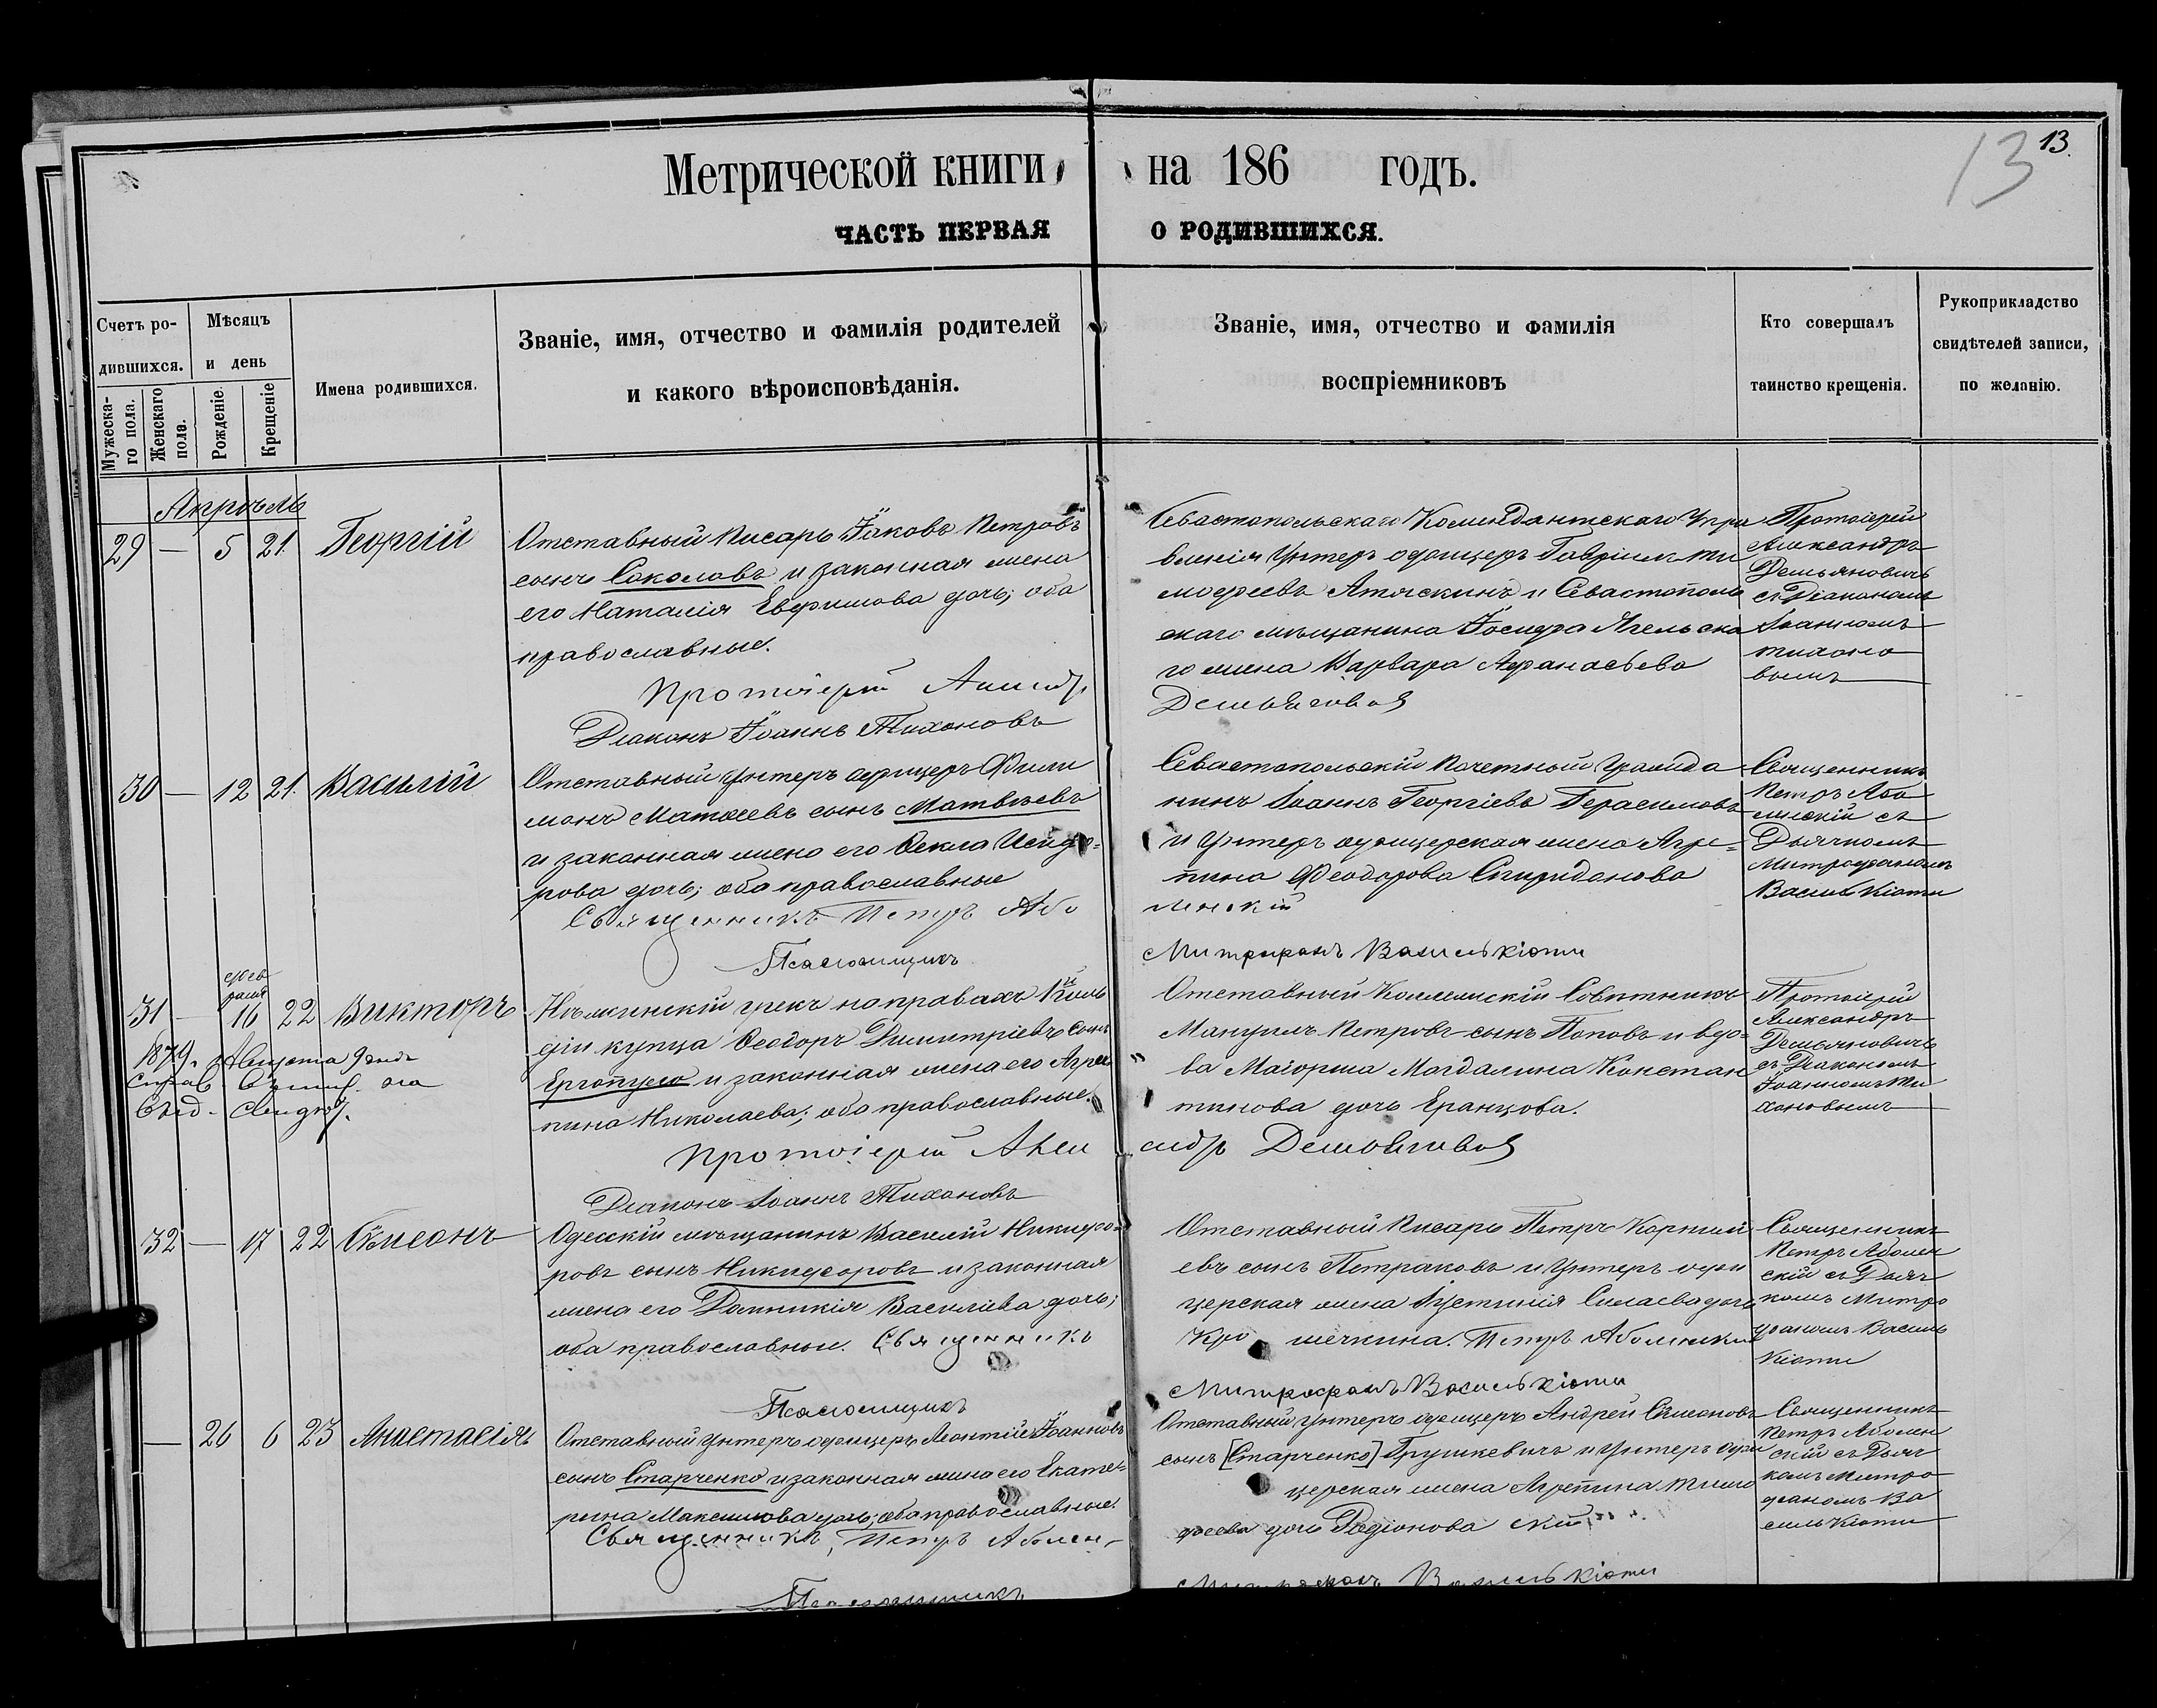 13 13.
Метрической книги на 186 годъ.
ЧАСТЬ ПЕРВАЯ О РОДИВШИХСЯ.
Счетъ ро-
дившихся.
Мужеска-
го пола.
Женскаго
пола.
Мѣсяцъ
и день
Рожденіе.
Крещеніе
Имена родившихся.
Званіе, имя, отчество и фамилія родителей
и какого вѣроисповѣданія.
Званіе, имя, отчество и фамилія
воспріемниковъ
Кто совершалъ
таинство крещенія.
Рукоприкладство
свидѣтелей записи,
по желанію.
Апрѣль
29 — 5 21. Георгій
Отставный Писарь Іаковъ Петровъ
сынъ Соколовъ и законная жена
его Наталія Евфимова дочь; оба
православные.
Протоіерей
Діаконъ Іоаннъ Тихоновъ
Севастопольскаго Комендантскаго Упра
вленія Унтеръ офицеръ Гавріилъ Ти
мофеевъ Атяскинъ и Севастополь
скаго мѣщанина Іосифа
го жена Варвара Афанасьева
Протоіерей
Александръ
Демьяновичъ
съ Діакономъ
Іоанномъ
Тихоно
вымъ
30 — 12 21. Василій
Отставный Унтеръ офицеръ Фили
монъ Матвеевъ сынъ Матвѣевъ
и законная жена его Ѳекла Исидо-
рова дочь; оба православные
Священникъ Петръ Або
Псаломщикъ
Севастопольскій Почетный Гражда
нинъ Іоаннъ Георгіевъ Герасимовъ
и Унтеръ офицерская жена Агре-
пина Феодорова Спиридонова
ленскій
Митрофанъ Василькіоти
Священникъ
Петръ Або
ленскій съ
Дьячкомъ
Митрофаномъ
Василькіоти
31 — фев
раля
16 22 Викторъ
1879. Августа 9 дня
Нѣжинскій грекъ на правахъ Гиль
діи купца Ѳеодоръ Димитріевъ сынъ
Ергопуло и законная жена его Агре
пина Николаева; оба православные.
Протоіерей Алек
Діаконъ Іоаннъ Тихоновъ
Отставный Коллежскій Совѣтникъ
Мануилъ Петровъ сынъ Поповъ и вдо-
ва Маіорша Магдалина Констан
тинова дочь Еранцова.
Протоіерей
Александръ
Демьяновичъ
съ Діакономъ
Іоанномъ Ти
хоновымъ
32 — 17 22 Сѵмеонъ
Одесскій мѣщанинъ Василій Никифо-
ровъ сынъ Никифоровъ и законная
жена его Домникія Василіева дочь;
оба православные. Священникъ
Псаломщикъ
Отставный Писарь Петръ
евъ сынъ Петраковъ и Унтеръ офи
церская жена Іустинія Силаева дочь
Кро шечкина. Петръ Аболенскій
Митрофанъ Василькіоти
Священникъ
Петръ Аболен
скій съ Дьяч
комъ Митро
фаномъ Василь
кіоти
— 26 6 23 Анастасія
Отставный Унтеръ офицеръ Леонтій Іоанновъ
сынъ Старченко и законная жена его Екате-
рина Максимова дочь; оба православные.
Священникъ, Петръ Аболен-
Псаломщикъ
Отставный Унтеръ офицеръ Андрей Сѵмеоновъ
сынъ [Старченко] Грушкевичъ и Унтеръ офи
церская жена Агрепина Тимо
феева дочь Родіонова скій
Митрофанъ Василькіоти
Священникъ
Петръ Аболен
скій съ Дьяч
комъ Митро
фаномъ Ва
силькіоти